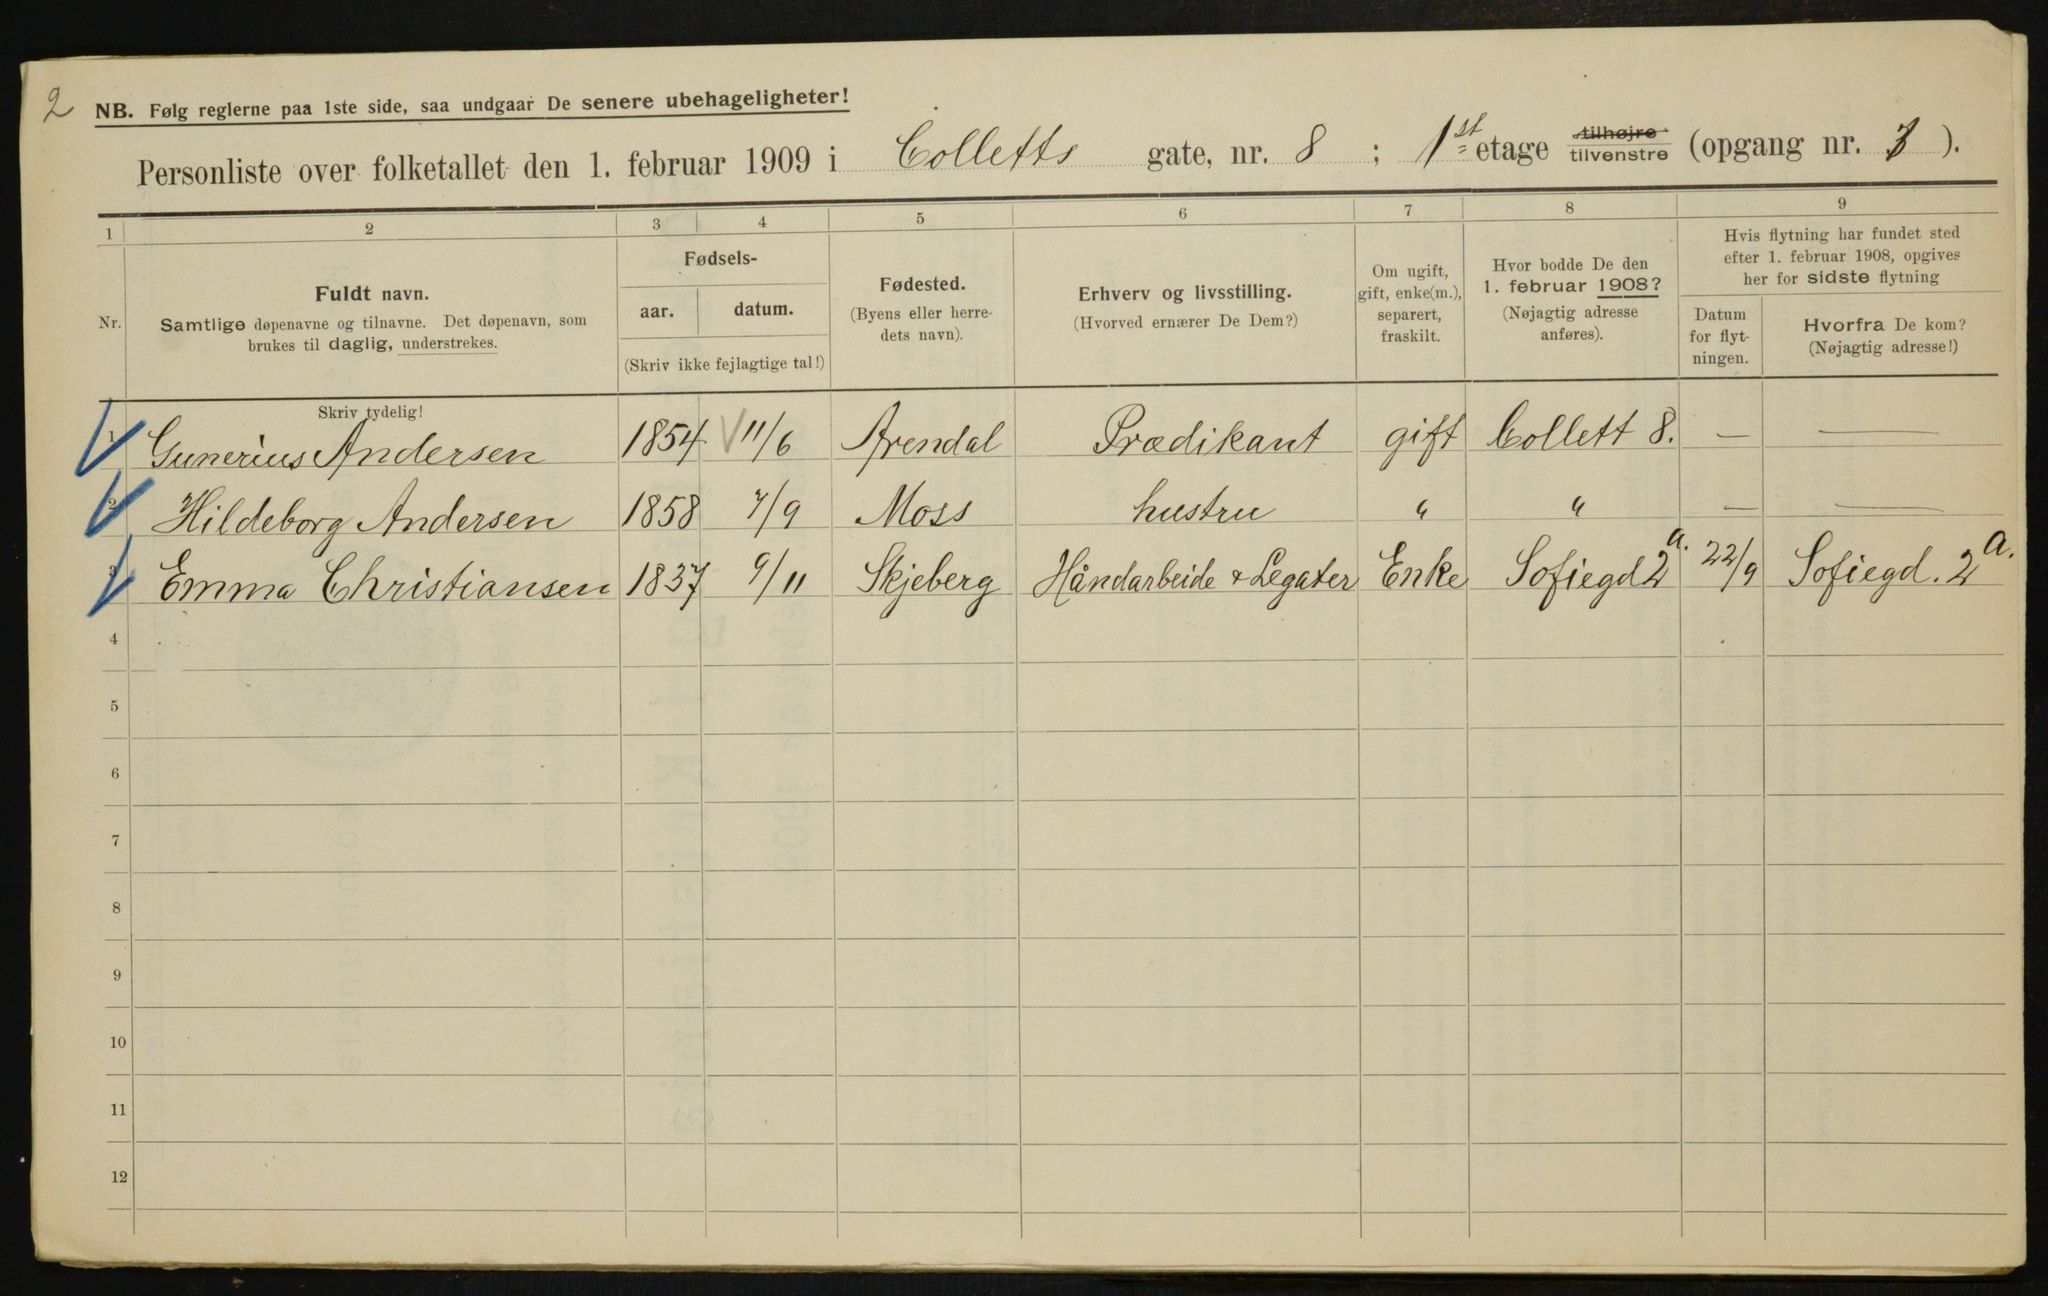 2
NB. Følg reglerne paa 1ste side, saa undgaar De senere ubehageligheter!
Personliste over folketallet den 1. februar 1909 i Colletts gate, nr. 8 ; 1st etage tilhøjre tilvenstre (opgang nr. ).
1 2 3 4 5 6 7 8 9
Nr.
Fuldt navn.
Samtlige døpenavne og tilnavne. Det døpenavn, som
brukes til daglig, understrekes.
Skriv tydelig!
Fødsels-
aar. datum.
(Skriv ikke fejlagtige tal!)
Fødested.
(Byens eller herre-
dets navn).
Erhverv og livsstilling.
(Hvorved ernærer De Dem?)
Om ugift,
gift, enke(m.),
separert,
fraskilt.
Hvor bodde De den
1. februar 1908?
(Nøjagtig adresse
anføres).
Hvis flytning har fundet sted
efter 1. februar 1908, opgives
her for sidste flytning
Datum
for flyt-
ningen.
Hvorfra De kom?
(Nøjagtig adresse!)
1 Gunerius Andersen 1854 11/6 Arendal Prædikant gift Collett 8. — —
2 Hildeborg Andersen 1858 7/9 Moss hustru " " — —
3 Emma Christiansen 1837 9/11 Skjeberg Håndarbeide & Legater Enke Sofiegd 2a. 22/9 Sofiegd. 2a.
4
5
6
7
8
9
10
11
12